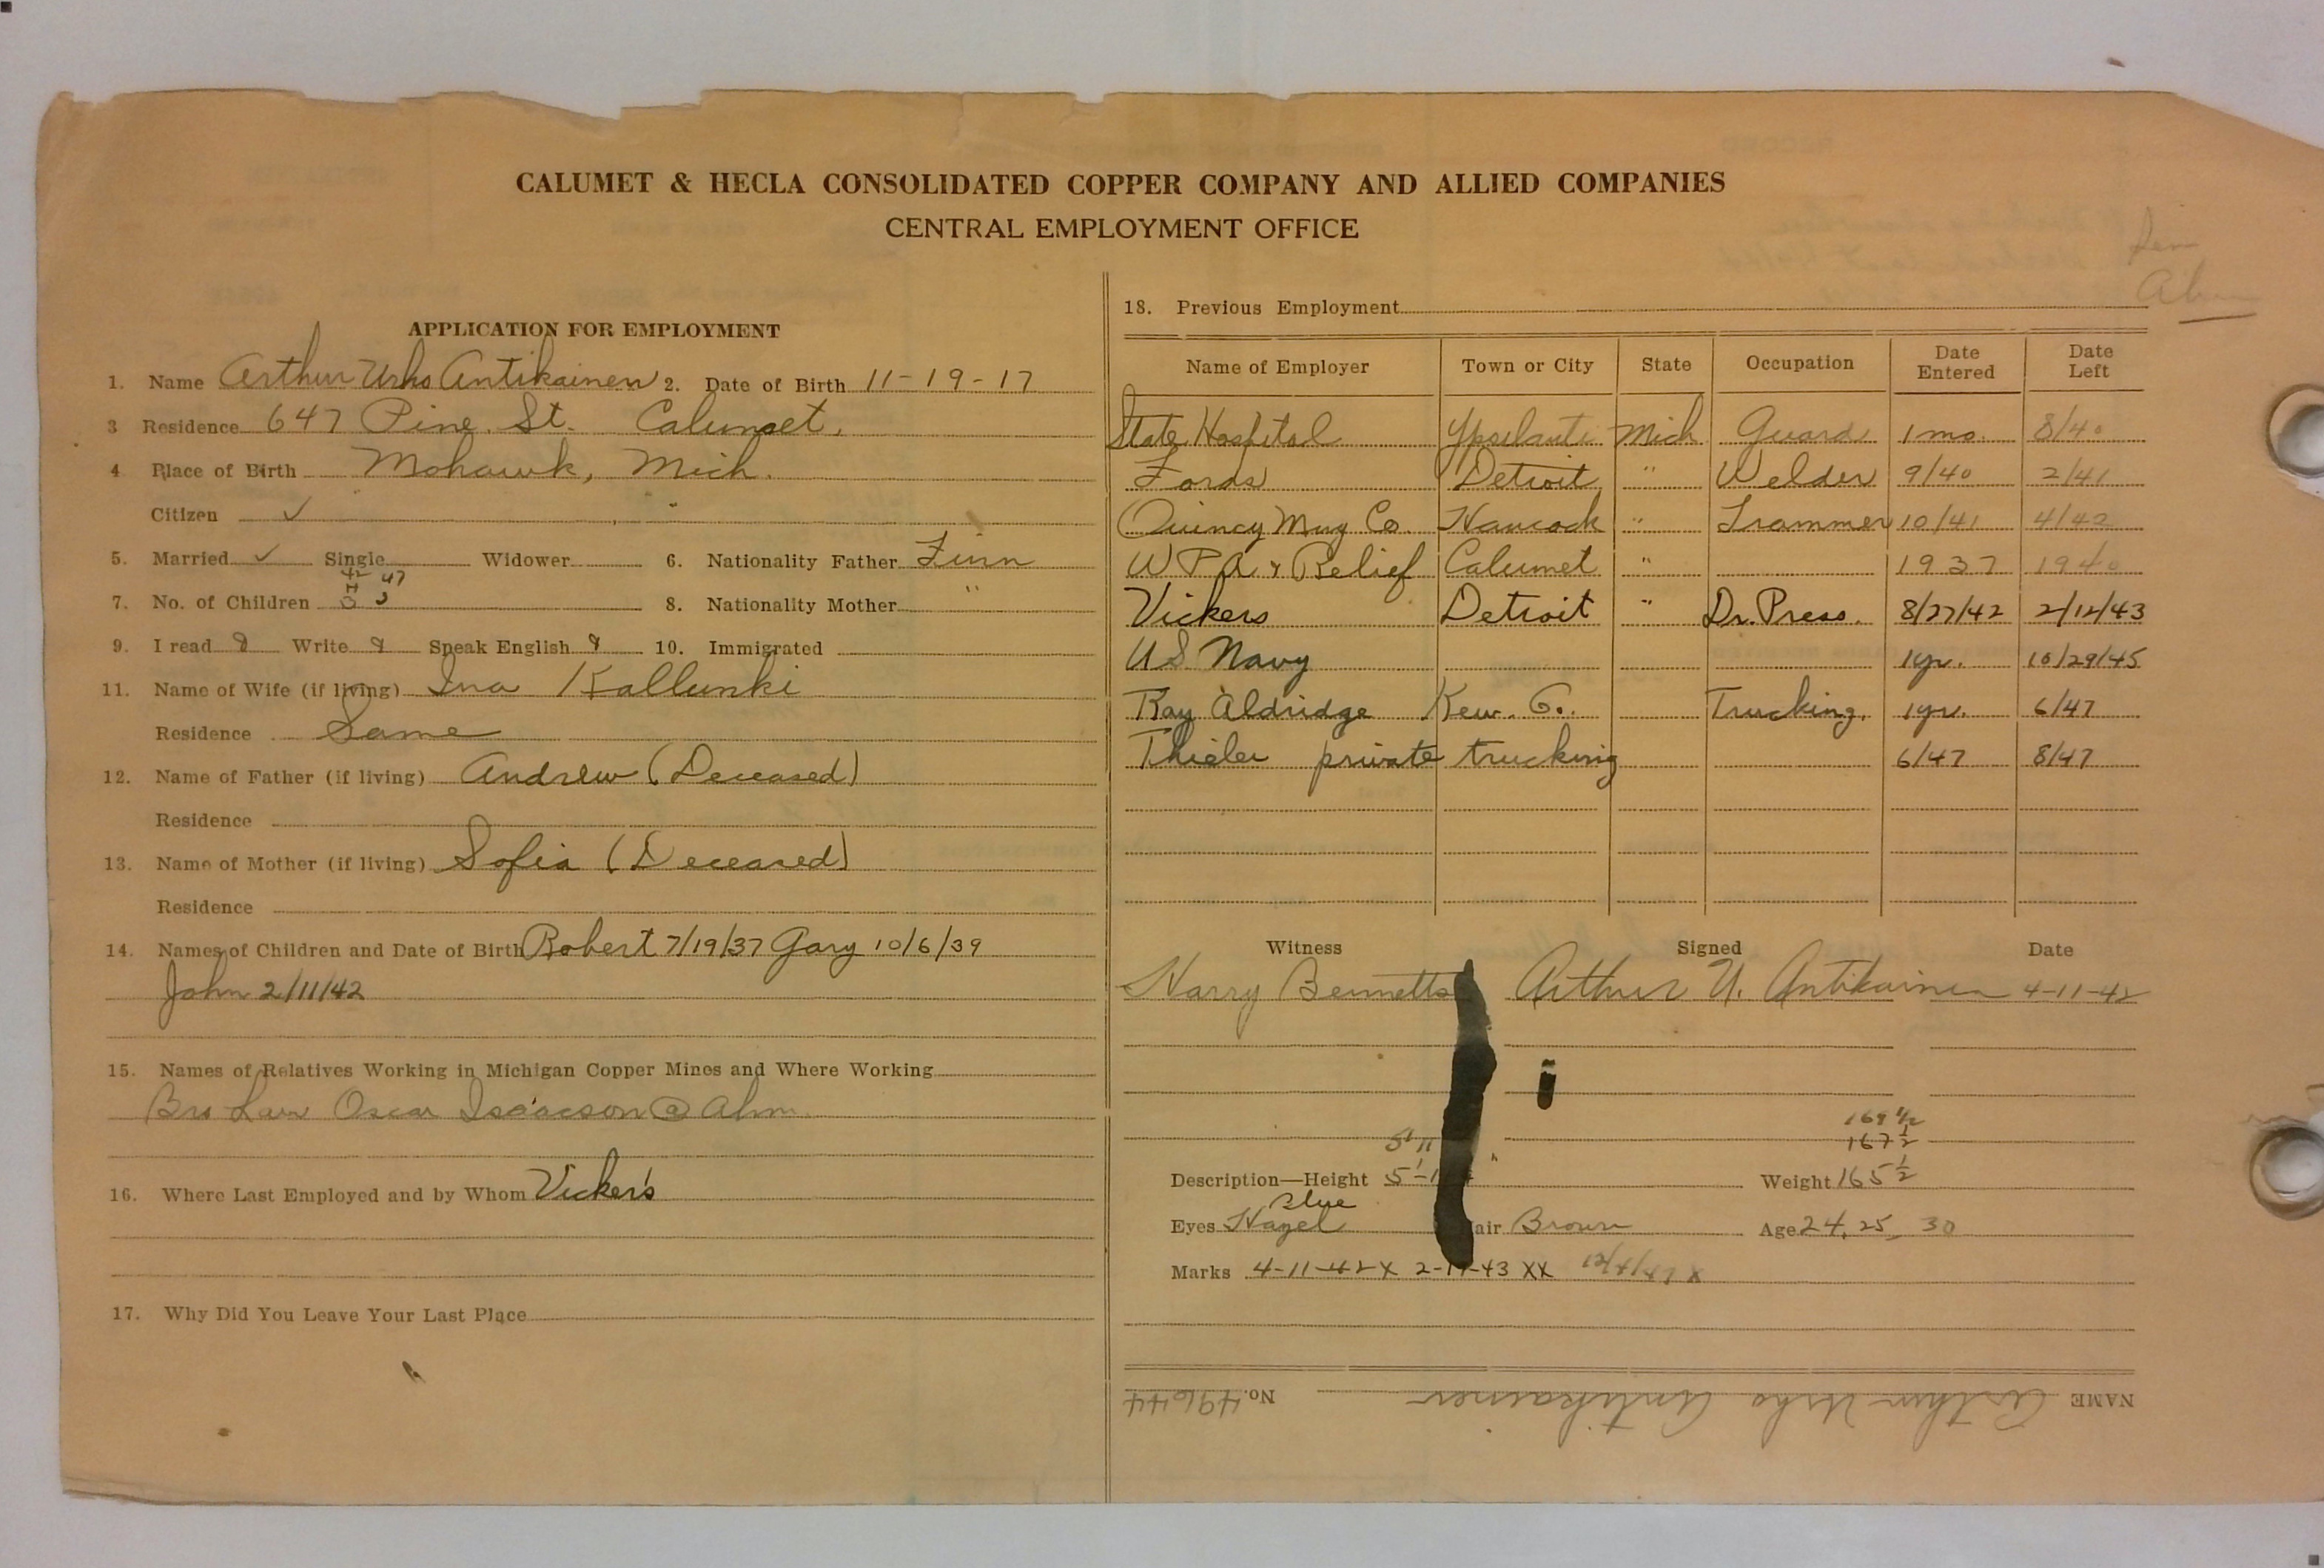 CALUMET & HECLA CONSOLIDATED COPPER COMPANY AND ALLIED COMPANIES
CENTRAL EMPLOYMENT OFFICE
APPLICATION FOR EMPLOYMENT
1. Name Arthur Urho Antikainen 2. Date of Birth 11-19-17
3 Residence 647 Pine St. Calumet,
4. Place of Birth Mohawk, Mich.
Citizen ✓ "
5. Married ✓ Single Widower 6. Nationality Father Finn
42 47
7. No. of Children 3 8. Nationality Mother "
9. I read Write Speak English 10. Immigrated
11. Name of Wife (if living) Ina Kallunki
Residence Same
12. Name of Father (if living) Andrew (Deceased)
Residence
13. Name of Mother (if living) Sofia (Deceased)
Residence
14. Names of Children and Date of Birth Robert 7/19/37 Gary 10/6/39
John 2/11/42
15. Names of Relatives Working in Michigan Copper Mines and Where Working
Bro Law Oscar Isaacson @ Ahm.
16. Where Last Employed and by Whom Vicker's
17. Why Did You Leave Your Last Place
Ahm
18. Previous Employment
Name of Employer Town or City State Occupation Date Entered Date Left
State Hospital Ypsilanti Mich Guard 1 mo. 8/40
Fords Detroit " Welder 9/40 2/41
Quincy Mng Co. Hancock " Trammer 10/41 4/42
W P A & Relief Calumet " 1937 1940
Vickers Detroit " Dr. Press. 8/27/42 2/12/43
US Navy 1yr. 10/29/45
Ray Aldridge Kew. Co. Trucking. 1yr. 6/47
Thieler private trucking 6/47 8/47
Witness Signed Date
Harry Bennetts Arthur U. Antikainen 4-11-42
169 1/2
5' 11 167 1/2
Description—Height 5'-1 Weight 165 1/2
Blue
Eyes Hazel air Brown Age 24, 25, 30
Marks 4-11-42 X 2-17-43 XX 12/4/47 X
NAME Arthur Urho Antikainen No. 49644